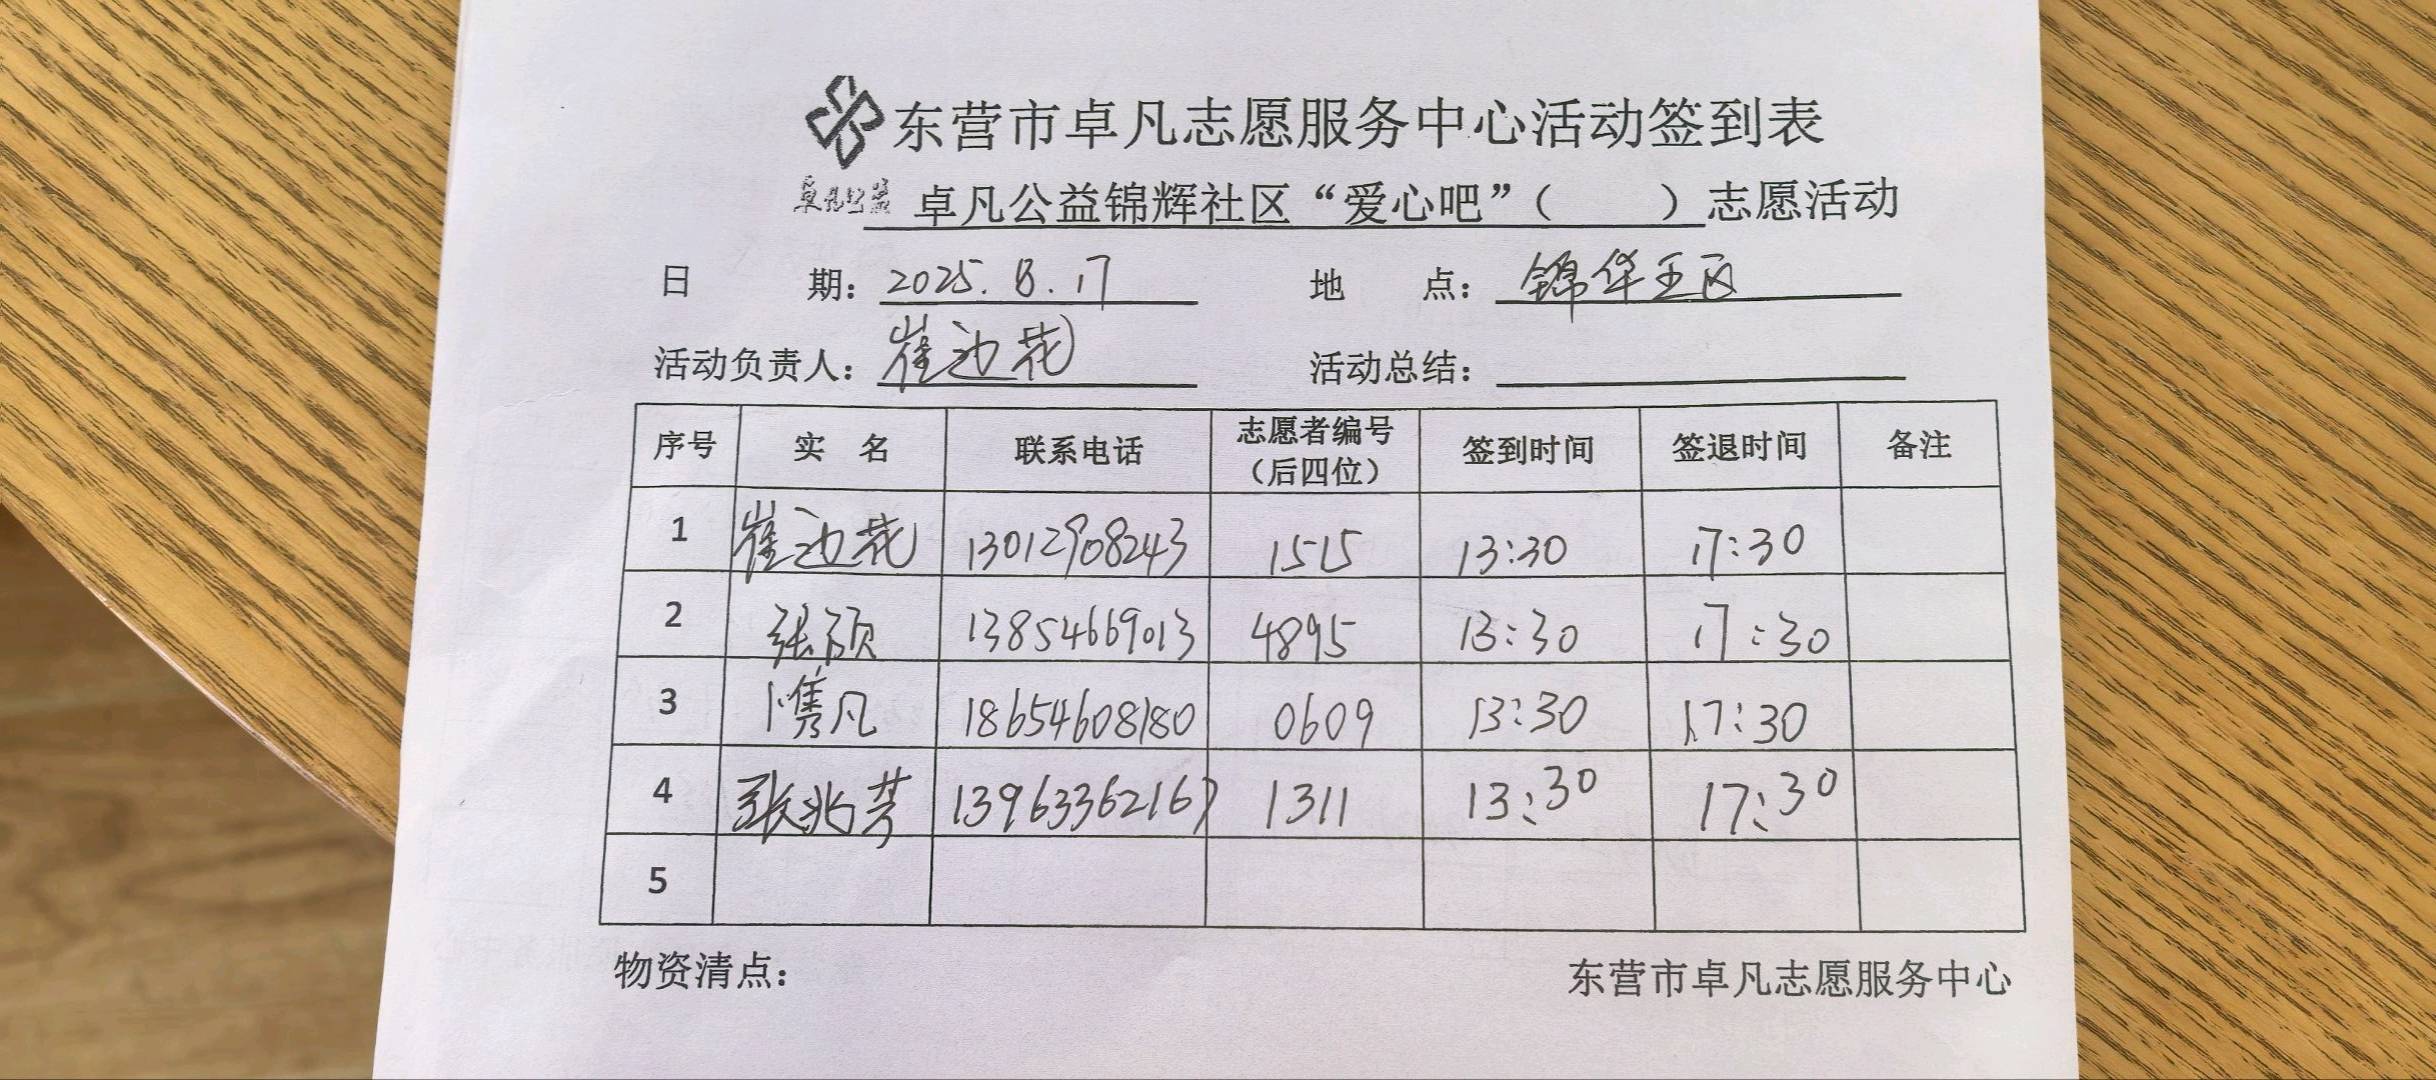 东营市卓凡志愿服务中心活动签到表
卓凡公益 卓凡公益锦辉社区“爱心吧”（ ）志愿活动
日 期：2025.8.17 地 点：锦华五区
活动负责人：崔边花 活动总结：
序号 实 名 联系电话 志愿者编号（后四位） 签到时间 签退时间 备注
1 崔边花 13012908243 1515 13:30 17:30
2 张硕 13854669013 4895 13:30 17:30
3 凡 18654608180 0609 13:30 17:30
4 张兆芳 13963362167 1311 13:30 17:30
5
物资清点： 东营市卓凡志愿服务中心